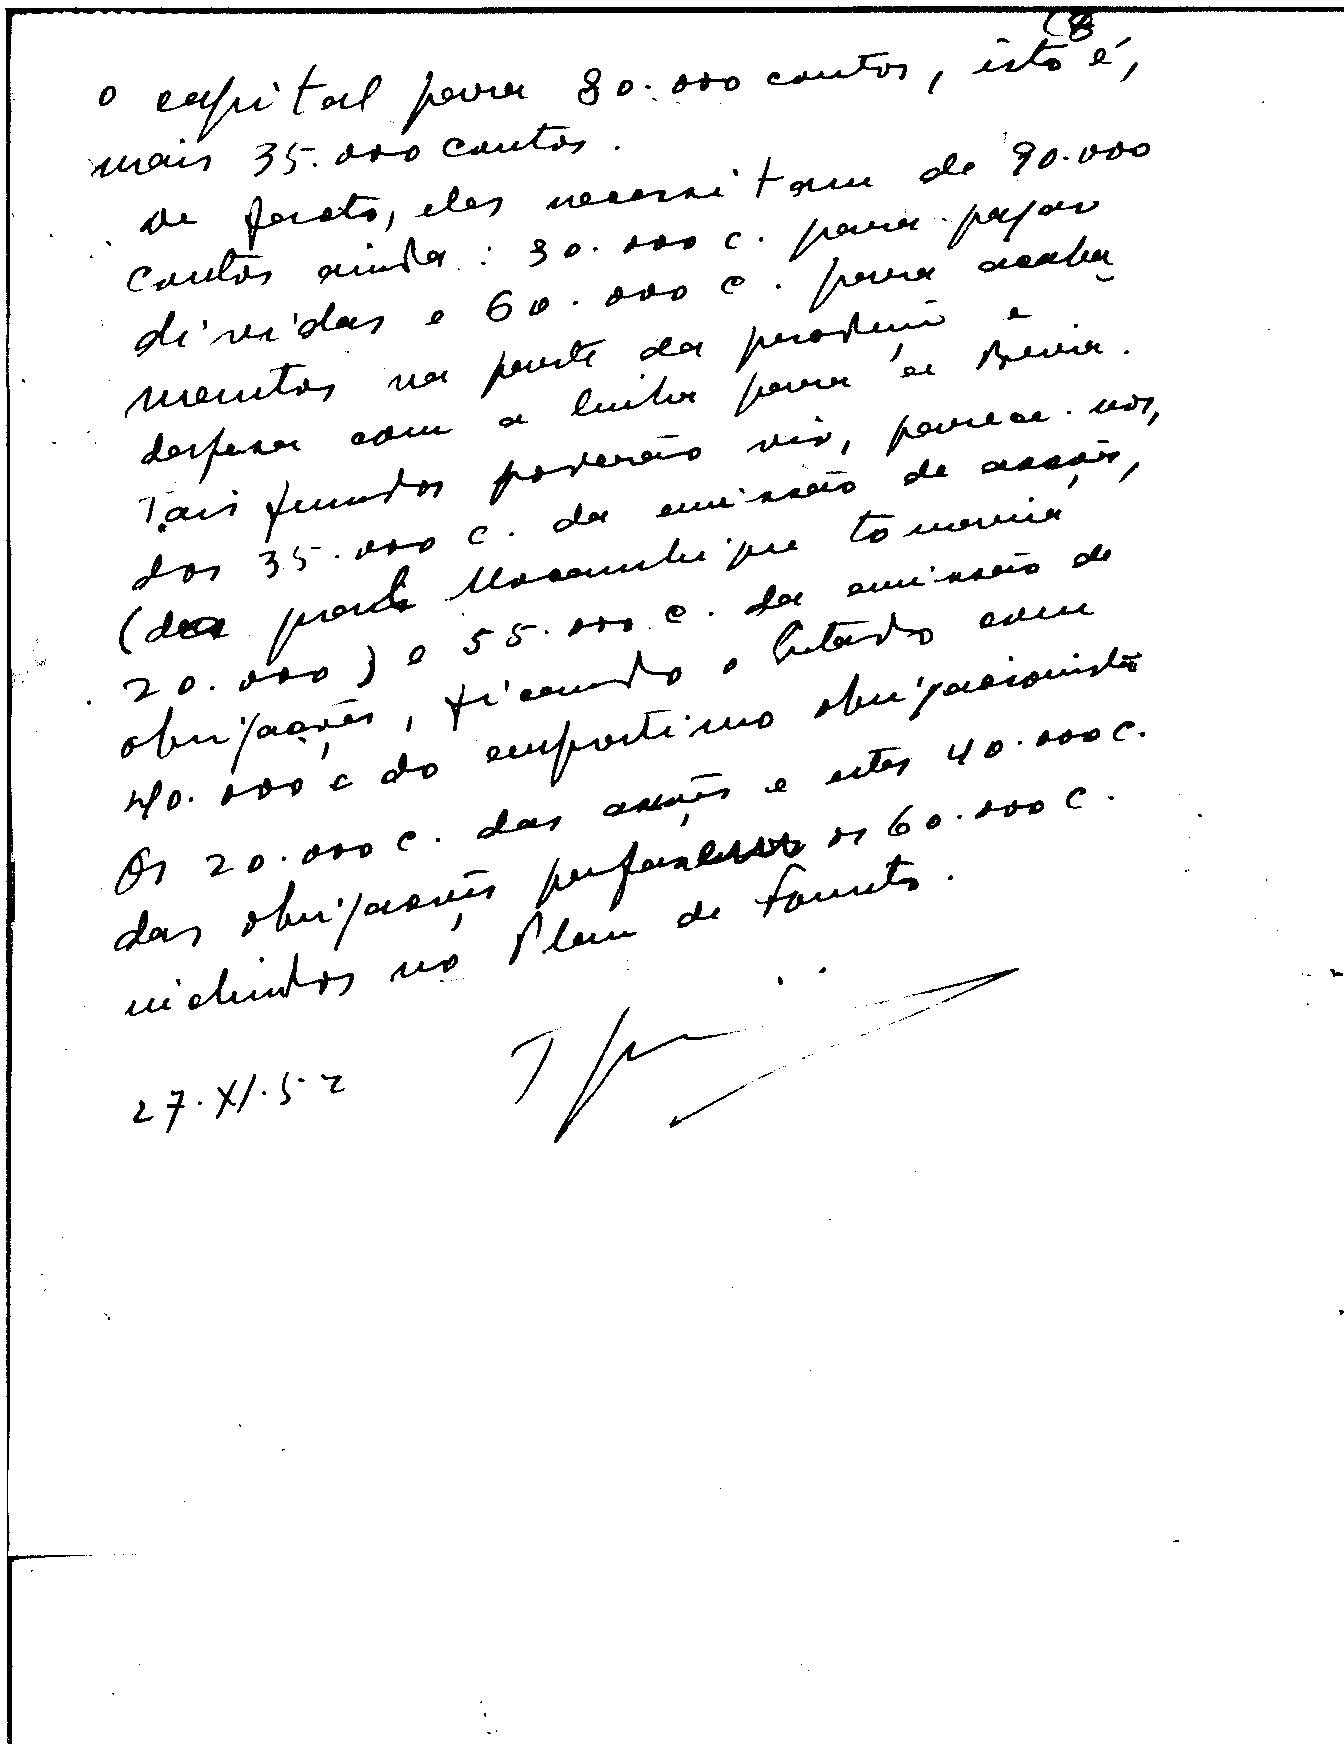 (8
o capital para 80.000 contos, isto é,
mais 35.000 contos.
De facto, eles necessitam de 90.000
contos ainda: 30.000 c. para pagar
dívidas e 60.000 c. para acaba
mentos na parte da e
com a linha para a Beira.
Tais fundos poderão vir, parece-nos,
dos 35.000 c. da emissão de acções,
(da parte Moçambique tomaria
20.000) e 55.000 c. da emissão de
obrigações, ficando o Estado com
40.000 c do empréstimo obrigacionista
Os 20.000 c. das acções e estes 40.000 c.
das obrigações os 60.000 c.
incluidos no Plano de Fomento.
27.XI.52